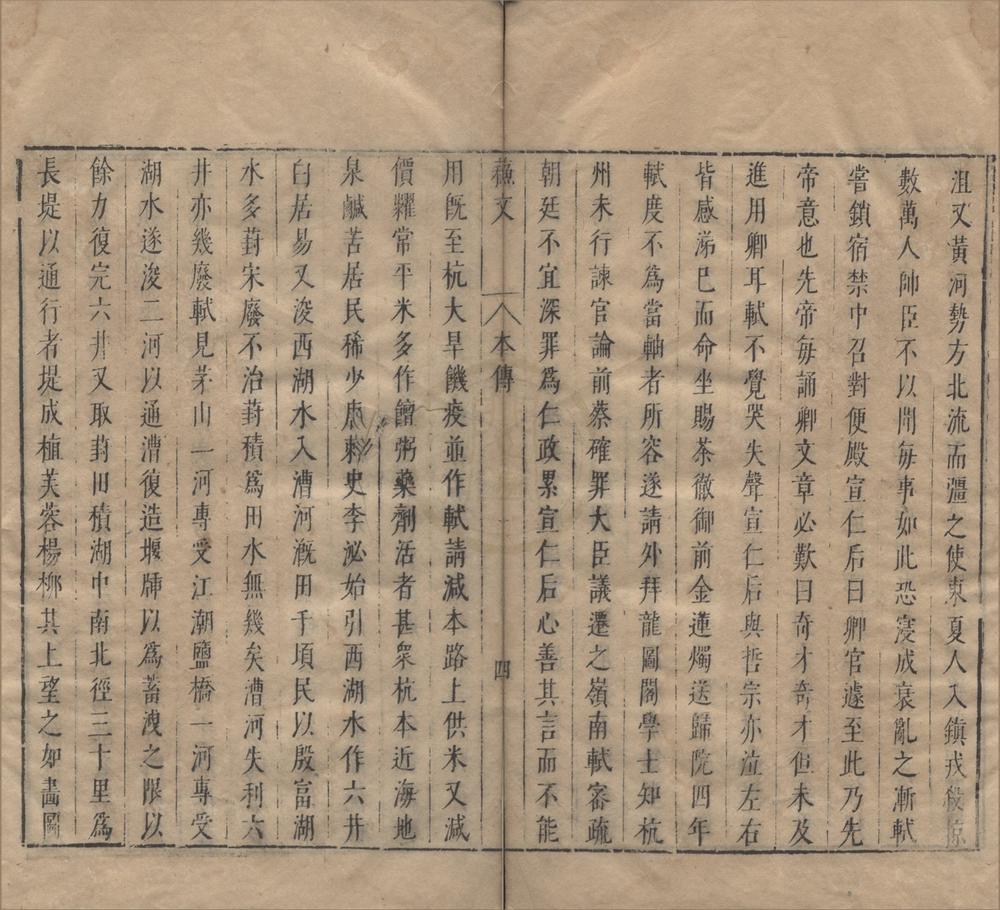 沮又黃河勢方北流而彊之使東夏人入鎮戎殺掠
數萬人帥臣不以聞每事如此恐寖成衰亂之漸軾
嘗鎖宿禁中召對便殿宣仁后曰卿官遽至此乃先
帝意也先帝每誦卿文章必歎曰奇才奇才但未及
進用卿耳軾不覺哭失聲宣仁后與哲宗亦泣左右
皆感涕已而命坐賜茶徹御前金蓮燭送歸院四年
軾度不為當軸者所容遂請外拜龍圖閣學士知杭
州未行諫官論前蔡確罪大臣議遷之嶺南軾審疏
朝廷不宜深罪為仁政累宣仁后心善其言而不能
蘇文 本傳 四
用旣至杭大旱饑疫並作軾請減本路上供米又減
價糶常平米多作饘粥藥劑活者甚衆杭本近海地
泉鹹苦居民稀少唐刺史李泌始引西湖水作六井
白居易又浚西湖水入漕河漑田千頃民以殷富湖
水多葑宋廢不治葑積為田水無幾矣漕河失利六
井亦幾廢軾見茅山一河專受江潮鹽橋一河專受
湖水遂浚二河以通漕復造堰牐以為蓄洩之限以
餘力復完六井又取葑田積湖中南北徑三十里為
長堤以通行者堤成植芙蓉楊柳其上望之如畵圖